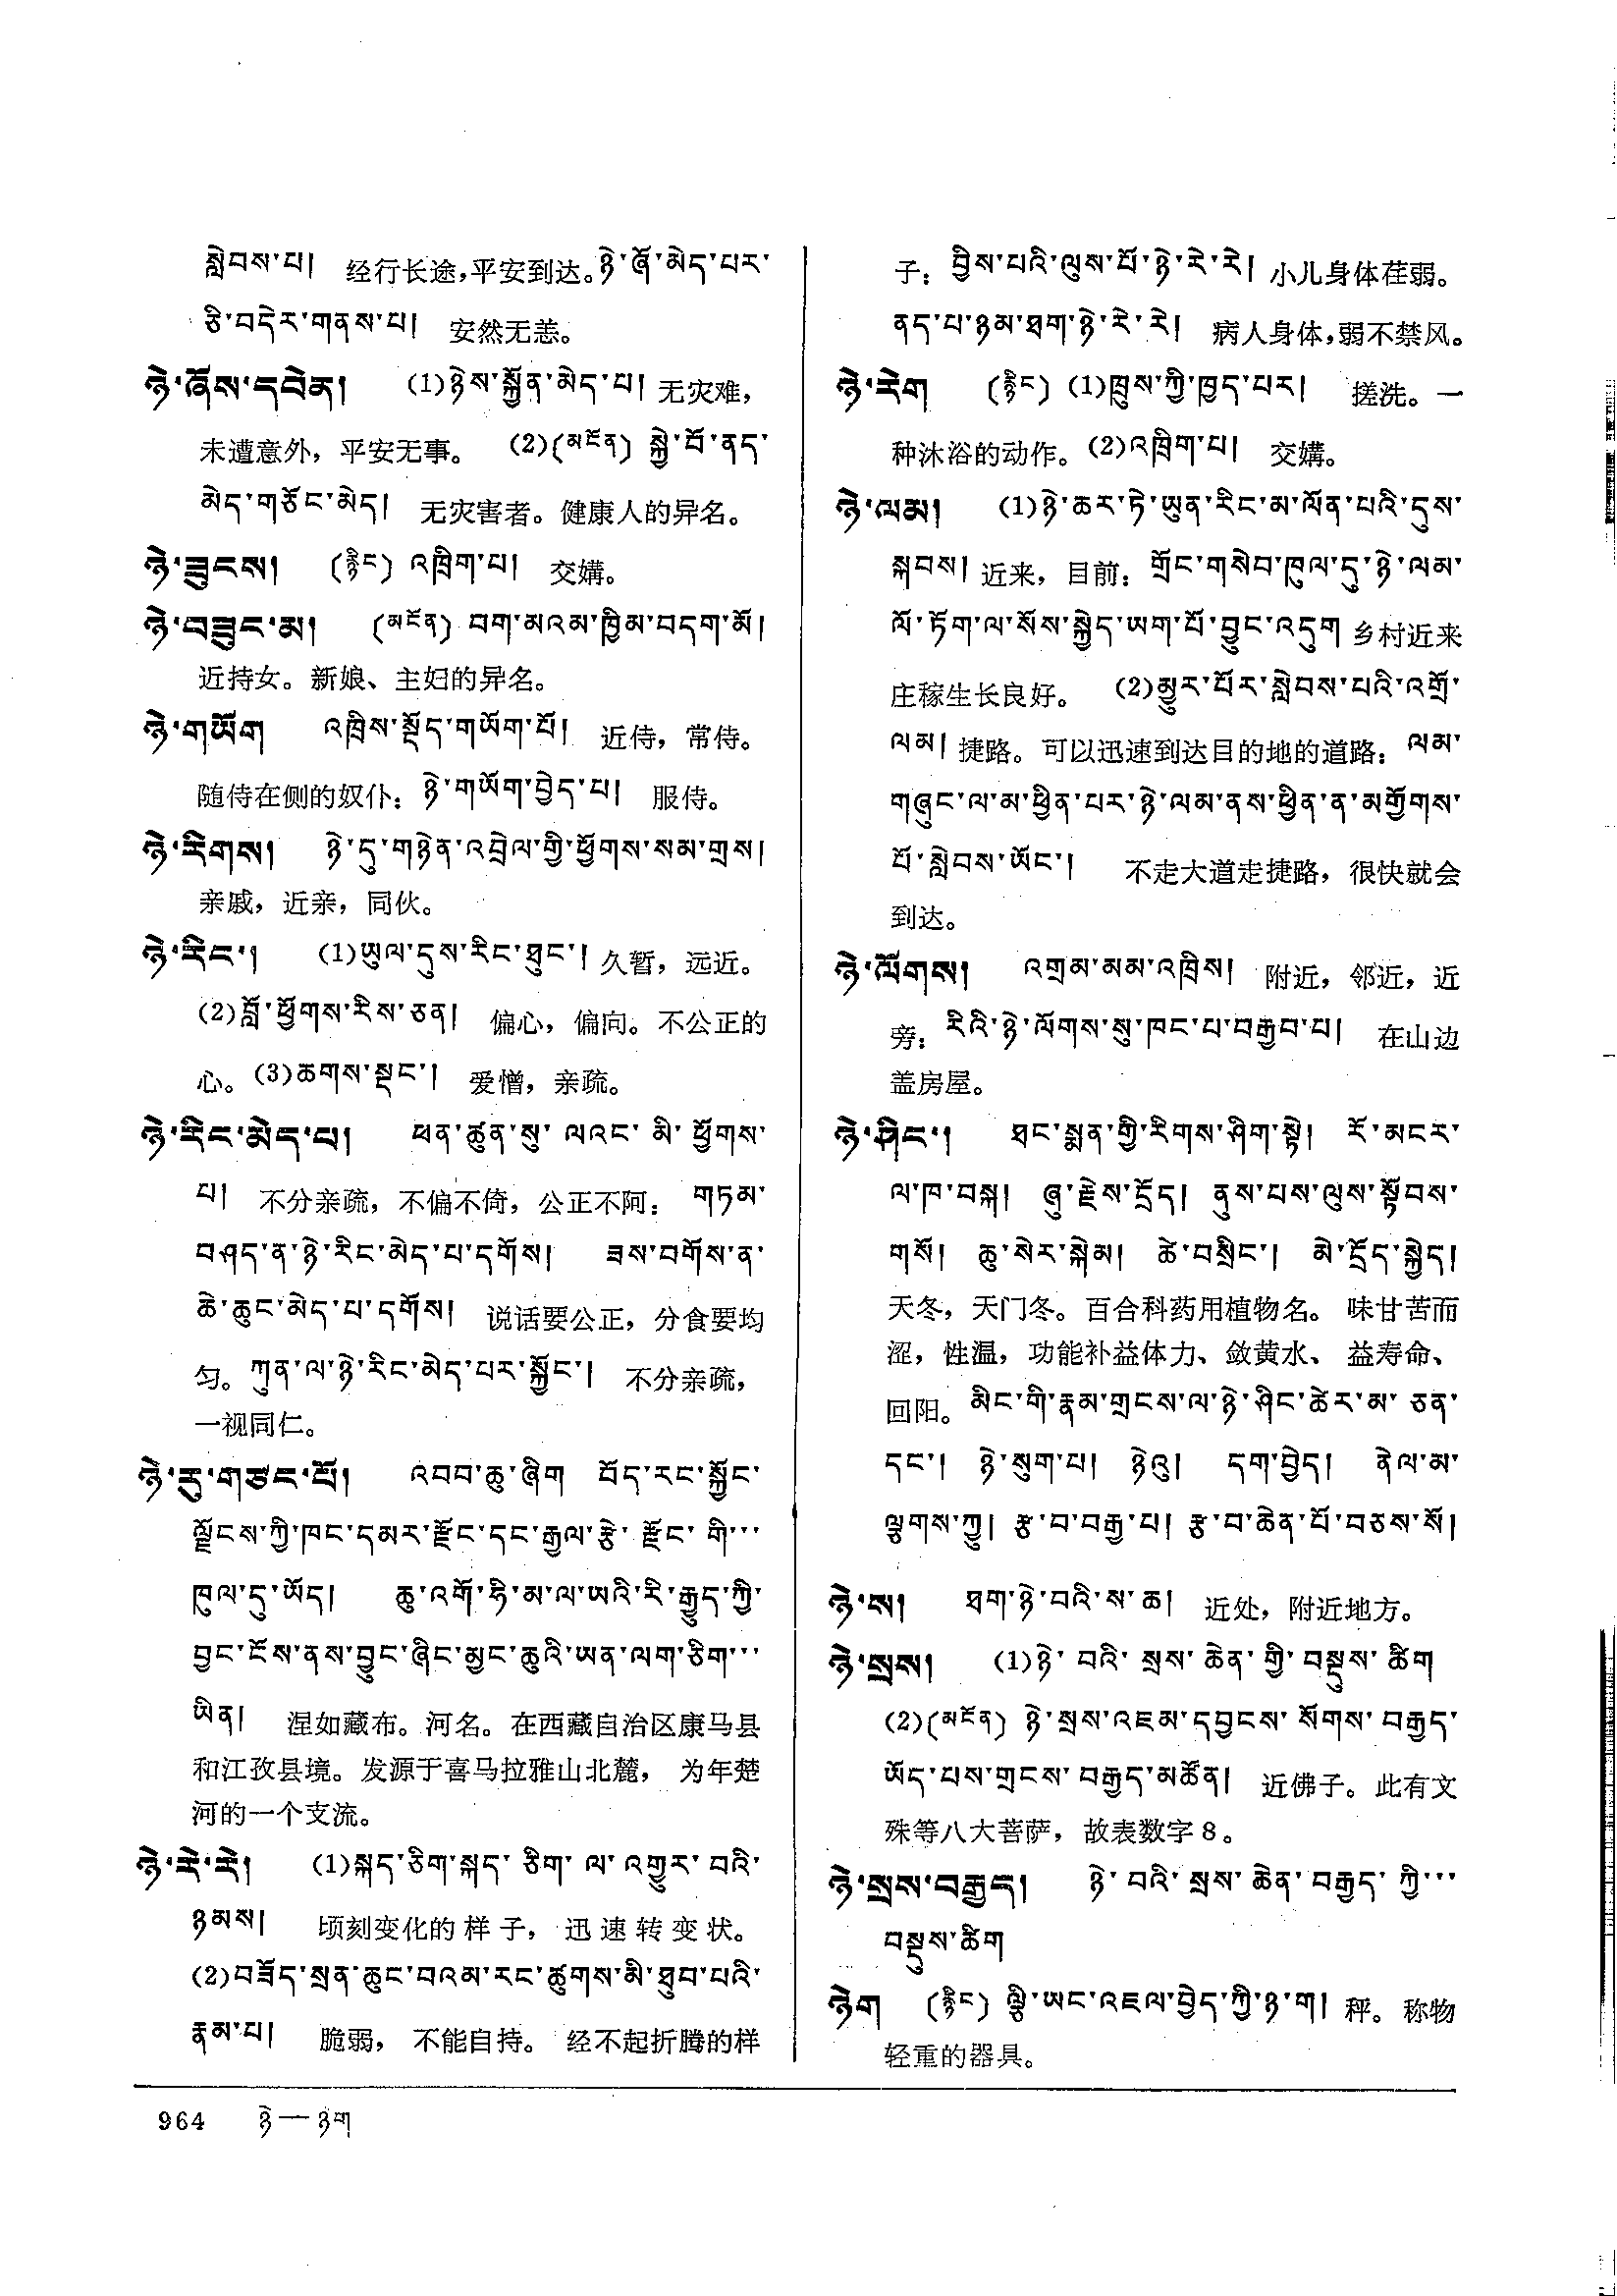 སླེབས་པ། 经行长途,平安到达。ཉེ་ཞོ་མེད་པར་
ཅི་བདེར་གནས་པ། 安然无恙。
ཉེ་ཞོས་དབེན། (1)ཉེས་སྐྱོན་མེད་པ། 无灾难，
未遭意外，平安无事。 (2)(མངོན) སྐྱེ་བོ་ནད་
མེད་གཅོང་མེད། 无灾害者。健康人的异名。
ཉེ་ཟུངས། (རྙིང) འཁྲིག་པ། 交媾。
ཉེ་བཟུང་མ། (མངོན) བག་མའམ་ཁྱིམ་བདག་མོ།
近持女。新娘、主妇的异名。
ཉེ་གཡོག འཁྲིས་སྡོད་གཡོག་པོ། 近侍，常侍。
随侍在侧的奴仆：ཉེ་གཡོག་བྱེད་པ། 服侍。
ཉེ་རིགས། ཉེ་དུ་གཉེན་འབྲེལ་གྱི་ཕྱོགས་སམ་གྲས།
亲戚，近亲，同伙。
ཉེ་རིང་། (1)ཡུལ་དུས་རིང་ཐུང་། 久暂，远近。
(2)བློ་ཕྱོགས་རིས་ཅན། 偏心，偏向。不公正的
心。(3)ཆགས་སྡང་། 爱憎，亲疏。
ཉེ་རིང་མེད་པ། ཕན་ཚུན་སུ་ ལའང་ མི་ ཕྱོགས་
པ། 不分亲疏，不偏不倚，公正不阿： གཏམ་
བཤད་ན་ཉེ་རིང་མེད་པ་དགོས། ཟས་བགོས་ན་
ཆེ་ཆུང་མེད་པ་དགོས། 说话要公正，分食要均
匀。ཀུན་ལ་ཉེ་རིང་མེད་པར་སྐྱོང་། 不分亲疏，
一视同仁。
ཉེ་རུ་གཙང་པོ། འབབ་ཆུ་ཞིག བོད་རང་སྐྱོང་
ལྗོངས་ཀྱི་ཁང་དམར་རྫོང་དང་རྒྱལ་རྩེ་ རྫོང་ གི…
ཁུལ་དུ་ཡོད། ཆུ་འགོ་ཧི་མ་ལ་ཡའི་རི་རྒྱུད་ཀྱི་
བྱང་ངོས་ནས་བྱུང་ཞིང་མྱང་ཆུའི་ཡན་ལག་ཅིག…
ཡིན། 涅如藏布。河名。在西藏自治区康马县
和江孜县境。发源于喜马拉雅山北麓， 为年楚
河的一个支流。
ཉེ་རེ་རེ། (1)སྐད་ཅིག་སྐད་ ཅིག་ ལ་ འགྱུར་ བའི་
ཉམས། 顷刻变化的样子， 迅速转变状。
(2)བཟོད་སྲན་ཆུང་བའམ་རང་ཚུགས་མི་ཐུབ་པའི་
རྣམ་པ། 脆弱， 不能自持。 经不起折腾的样
子：བྱིས་པའི་ལུས་པོ་ཉེ་རེ་རེ། 小儿身体荏弱。
ནད་པ་ཉམ་ཐག་ཉེ་རེ་རེ། 病人身体,弱不禁风。
ཉེ་རེག (རྙིང) (1)ཁྲུས་ཀྱི་ཁྱད་པར། 搓洗。一
种沐浴的动作。(2)འཁྲིག་པ། 交媾。
ཉེ་ལམ། (1)ཉེ་ཆར་ཏེ་ཡུན་རིང་མ་ལོན་པའི་དུས་
སྐབས། 近来，目前：གྲོང་གསེབ་ཁུལ་དུ་ཉེ་ལམ་
ལོ་ཏོག་ལ་སོས་སྐྱེད་ཡག་པོ་བྱུང་འདུག 乡村近来
庄稼生长良好。 (2)མྱུར་པོར་སླེབས་པའི་འགྲོ་
ལམ། 捷路。可以迅速到达目的地的道路：ལམ་
གཞུང་ལ་མ་ཕྱིན་པར་ཉེ་ལམ་ནས་ཕྱིན་ན་མགྱོགས་
པོ་སླེབས་ཡོང་། 不走大道走捷路，很快就会
到达。
ཉེ་ལོགས། འགྲམ་མམ་འཁྲིས། 附近，邻近，近
旁：རིའི་ཉེ་ལོགས་སུ་ཁང་པ་བརྒྱབ་པ། 在山边
盖房屋。
ཉེ་ཤིང་། ཐང་སྨན་གྱི་རིགས་ཤིག་སྟེ། རོ་མངར་
ལ་ཁ་བསྐ། ཞུ་རྗེས་དྲོད། ནུས་པས་ལུས་སྟོབས་
གསོ། ཆུ་སེར་སྐེམ། ཚེ་བསྲིང་། མེ་དྲོད་སྐྱེད།
天冬，天门冬。百合科药用植物名。 味甘苦而
涩，性温，功能补益体力、敛黄水、 益寿命、
回阳。མིང་གི་རྣམ་གྲངས་ལ་ཉེ་ཤིང་ཚེར་མ་ ཅན་
དང་། ཉེ་སུག་པ། ཉེའུ། དག་བྱེད། ནེལ་མ་
ལྕགས་ཀྱུ། རྩ་བ་བརྒྱ་པ། རྩ་བ་ཆེན་པོ་བཅས་སོ།
ཉེ་ས། ཐག་ཉེ་བའི་ས་ཆ། 近处，附近地方。
ཉེ་སྲས། (1)ཉེ་ བའི་ སྲས་ ཆེན་ གྱི་ བསྡུས་ ཚིག
(2)(མངོན) ཉེ་སྲས་འཇམ་དབྱངས་ སོགས་ བརྒྱད་
ཡོད་པས་གྲངས་ བརྒྱད་མཚོན། 近佛子。此有文
殊等八大菩萨，故表数字8。
ཉེ་སྲས་བརྒྱད། ཉེ་ བའི་ སྲས་ ཆེན་ བརྒྱད་ ཀྱི་…
བསྡུས་ཚིག
ཉེག (རྙིང) ལྕི་ཡང་འཇལ་བྱེད་ཀྱི་ཉ་ག། 秤。称物
轻重的器具。
964 ཉེ—ཉེག